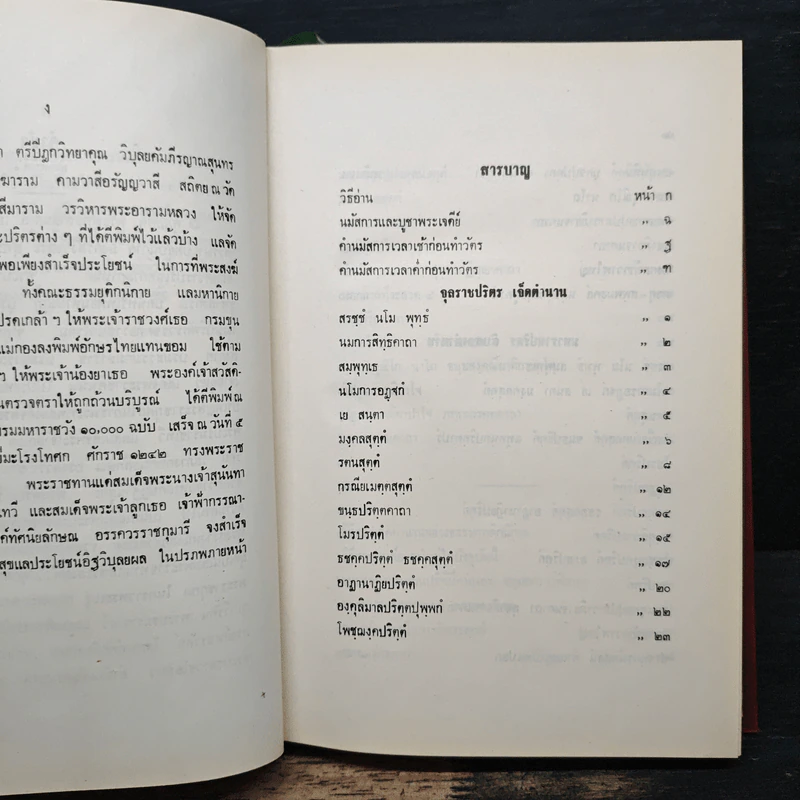 ง
ตรีปิฎกวิทยาคุณ วิบุลยคัมภีรญาณสุนทร
ฆาราม คามวาสีอรัญญวาสี สถิตย ณ วัด
สีมาราม วรวิหารพระอารามหลวง ให้จัด
ะปริตรต่าง ๆ ที่ได้ตีพิมพ์ไว้แล้วบ้าง แลจัด
พอเพียงสำเร็จประโยชน์ ในการที่พระสงฆ์
ทั้งคณะธรรมยุติกนิกาย แลมหานิกาย
ปรดเกล้า ฯ ให้พระเจ้าราชวงศ์เธอ กรมขุน
แม่กองลงพิมพ์อักษรไทยแทนขอม ใช้ตาม
ฯ ให้พระเจ้าน้องยาเธอ พระองค์เจ้าสวัสดิ-
นตรวจตราให้ถูกถ้วนบริบูรณ์ ได้ตีพิมพ์ ณ
รมมหาราชวัง ๑๐,๐๐๐ ฉบับ เสร็จ ณ วันที่ ๕
ปีมะโรงโทศก ศักราช ๑๒๔๒ ทรงพระราช
พระราชทานแด่สมเด็จพระนางเจ้าสุนันทา
เทวี และสมเด็จพระเจ้าลูกเธอ เจ้าฟ้ากรรณา-
ค์ทัศนิยลักษณ อรรควรราชกุมารี จงสำเร็จ
สุขแลประโยชน์อิฐวิบุลยผล ในปรภพภายหน้า
สารบาญ
วิธีอ่าน หน้า ก
นมัสการและบูชาพระเจดีย์ ,, ฉ
คำนมัสการเวลาเช้าก่อนทำวัตร ,, ฐ
คำนมัสการเวลาค่ำก่อนทำวัตร ,, ฑ
จุลราชปริตร เจ็ดตำนาน
สรชฺชํ นโม พุทฺธํ ,, ๑
นมการสิทฺธิคาถา ,, ๒
สมฺพุทฺเธ ,, ๓
นโมการอฏฺฐกํ ,, ๔
เย สนฺตา ,, ๕
มงฺคลสุตฺตํ ,, ๖
รตนสุตฺตํ ,, ๘
กรณียเมตฺตสุตฺตํ ,, ๑๒
ขนฺธปริตฺตคาถา ,, ๑๔
โมรปริตฺตํ ,, ๑๕
ธชคฺคปริตฺตํ ธชคฺคสุตฺตํ ,, ๑๗
อาฏานาฏิยปริตฺตํ ,, ๒๐
องฺคุลิมาลปริตฺตปุพฺพกํ ,, ๒๒
โพชฺฌงฺคปริตฺตํ ,, ๒๓